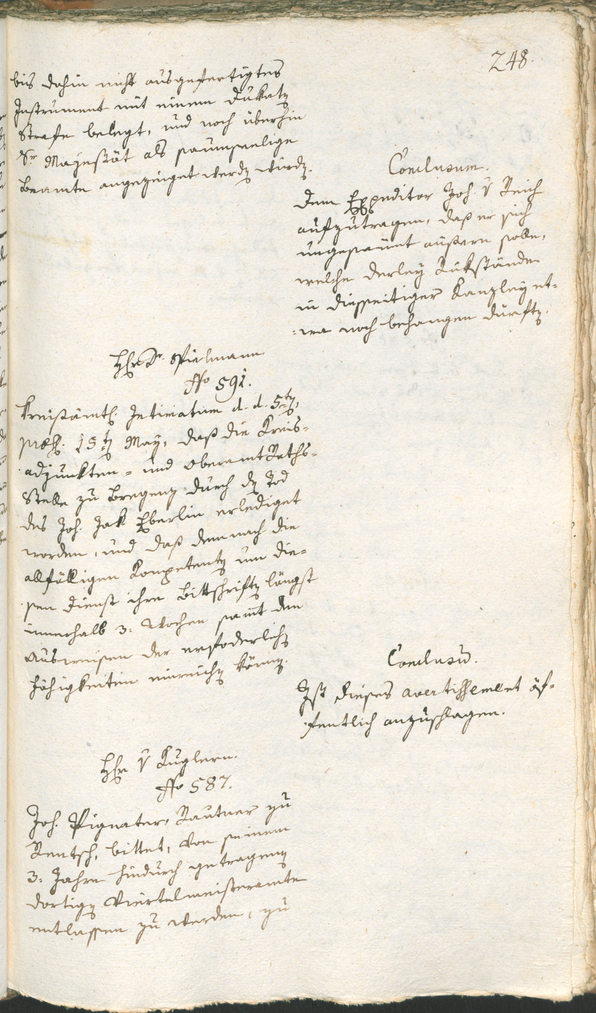 248.
bis dahin nicht ausgefertigtes
Instrument mit einem Dukaten
Strafe belegt, und noch überhin
Sr Majestät als saumseelige
Beamte angezeiget werdn würdn.
Conclusum.
Dem Expeditor Joh. v Reich
aufzutragen, daß er sich
ungesäumt äußern solle,
welche derley Rükstände
in diesseitiger Kanzley et-
wa noch behangen dürftn.
Hr Dr. Spielmann
No 591.
Kreisämtl. Intimatum d. d. 5tn,
präs. 15tn May, daß die Kreis-
adjunkten- und Oberamts Raths-
Stelle zu Bregenz durch dn Tod
des Joh. Jak Eberlin erlediget
worden, und daß demnach die
allfälligen Kompetentn um die-
sen Dienst ihre Bittschriftn längst
innerhalb 3. Wochen samt den
Ausweisen der erforderlichn
Fähigkeiten einreichn könn.
Conclusū.
Ist dieses avertissement öf-
fentlich anzuschlagen.
Hr v Kuglern.
No 587.
Joh. Pignater, Rautner zu
Rentsch, bittet, von seinem
3. Jahre hindurch getragenen
dortign Viertelmeisteramte
entlassen zu werden, zu